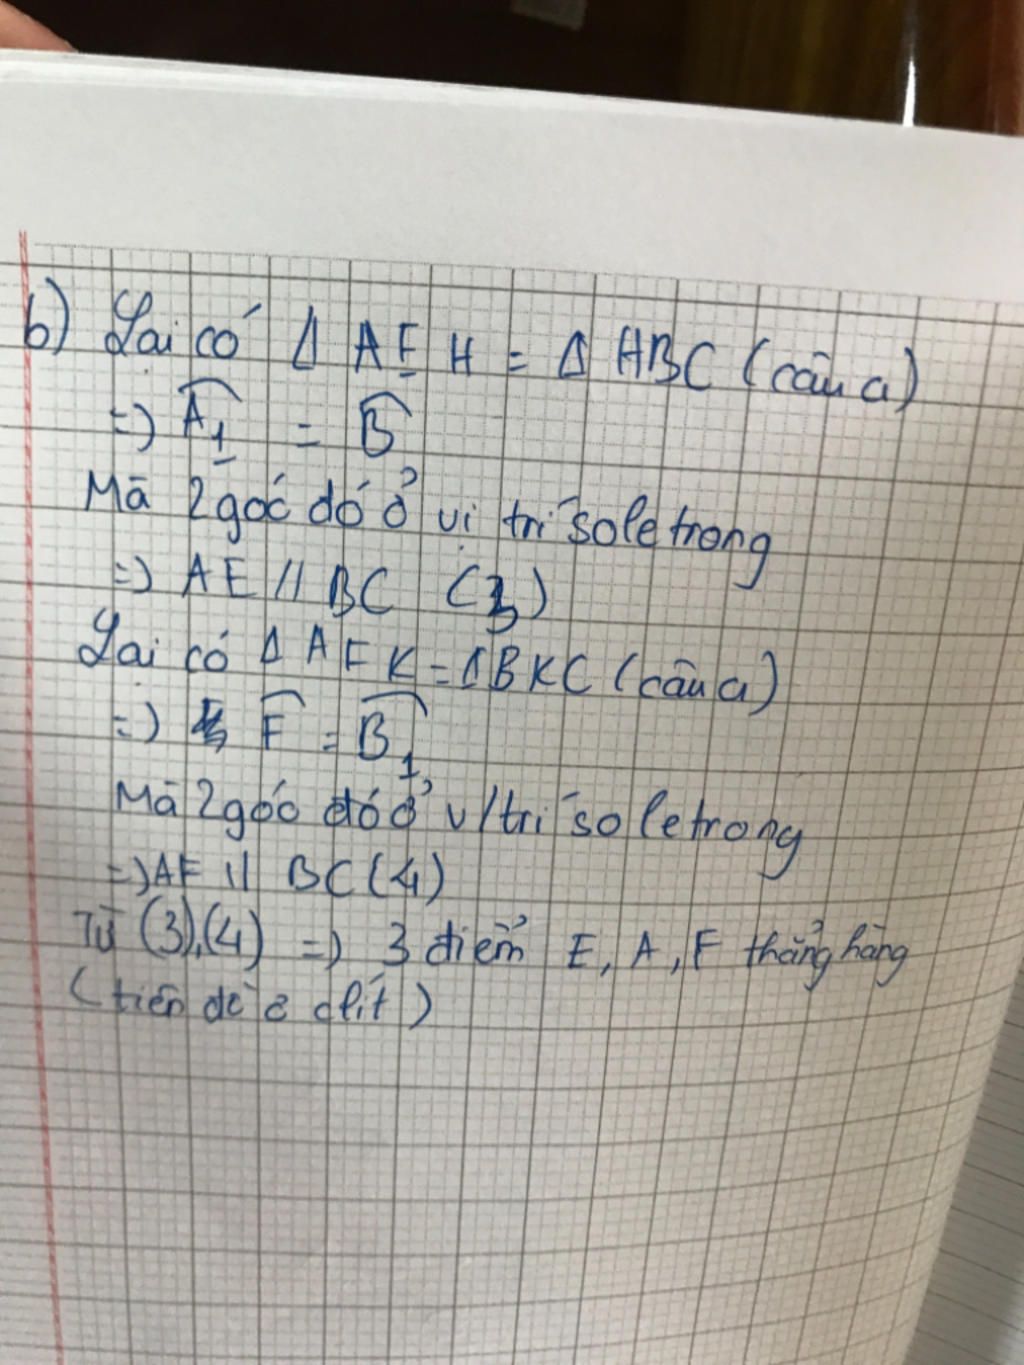 b) Lại có Δ AEH = Δ HBC (câu a)
=) Â₁ = B̂
Mà 2 góc đó ở vị trí so le trong
=) AE // BC (3)
Lại có Δ AFK = Δ BKC (câu a)
=) F̂ = B̂₁
Mà 2 góc đó ở v/trí so le trong
=) AF // BC (4)
Từ (3), (4) =) 3 điểm E, A, F thẳng hàng
(tiên đề ơ clít)